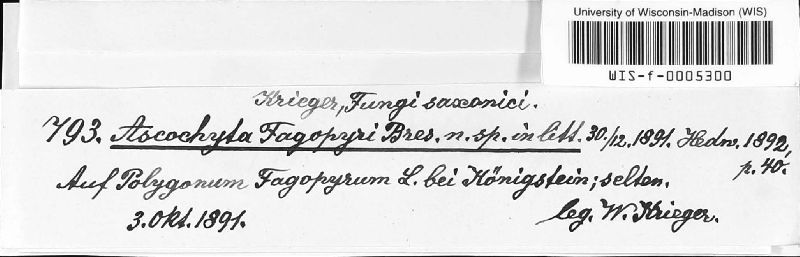 University of Wisconsin-Madison (WIS)
WIS-f-0005300
Krieger, Fungi saxonici.
793. Ascochyta Fagopyri Bres. n. sp. in litt. 30./12. 1891. Hedw. 1892, p. 40.
Auf Polygonum Fagopyrum L. bei Königstein; selten.
3. Okt. 1891. leg. W. Krieger.